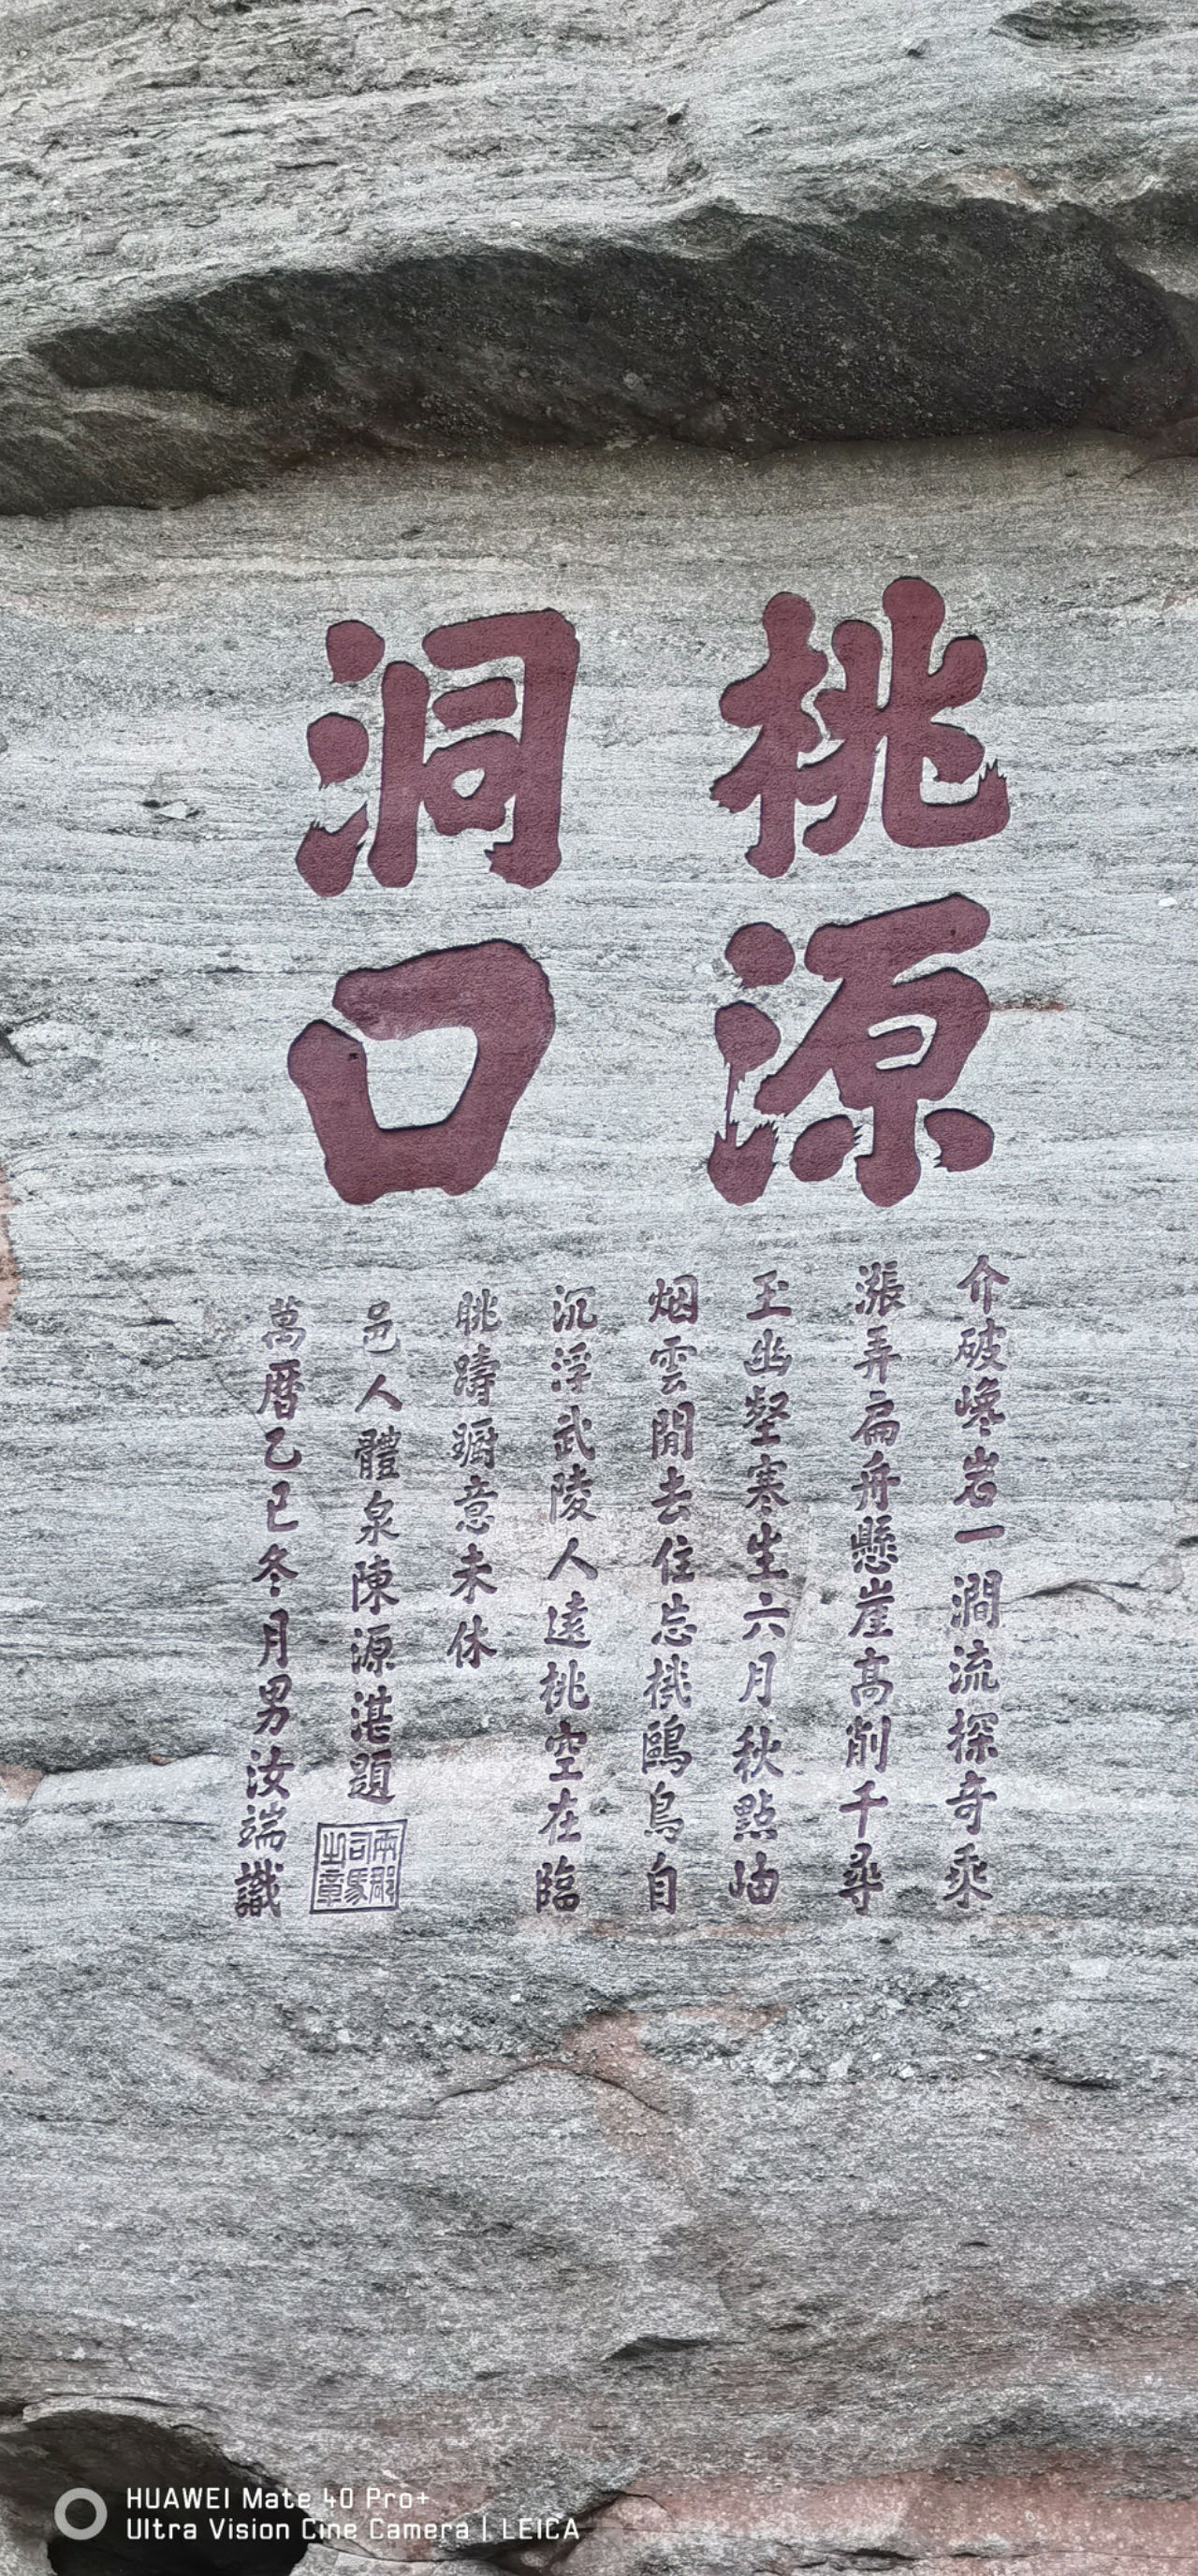 桃源
洞口
介破巉岩一澗流探奇乘
漲弄扁舟懸崖高削千尋
玉幽壑寒生六月秋點岫
烟雲閒去住忘機鷗鳥自
沉浮武陵人遠桃空在臨
眺躊躕意未休
邑人體泉陳源湛題
兩郡司馬之章
萬曆乙巳冬月男汝端識
HUAWEI Mate 40 Pro+
Ultra Vision Cine Camera | LEICA